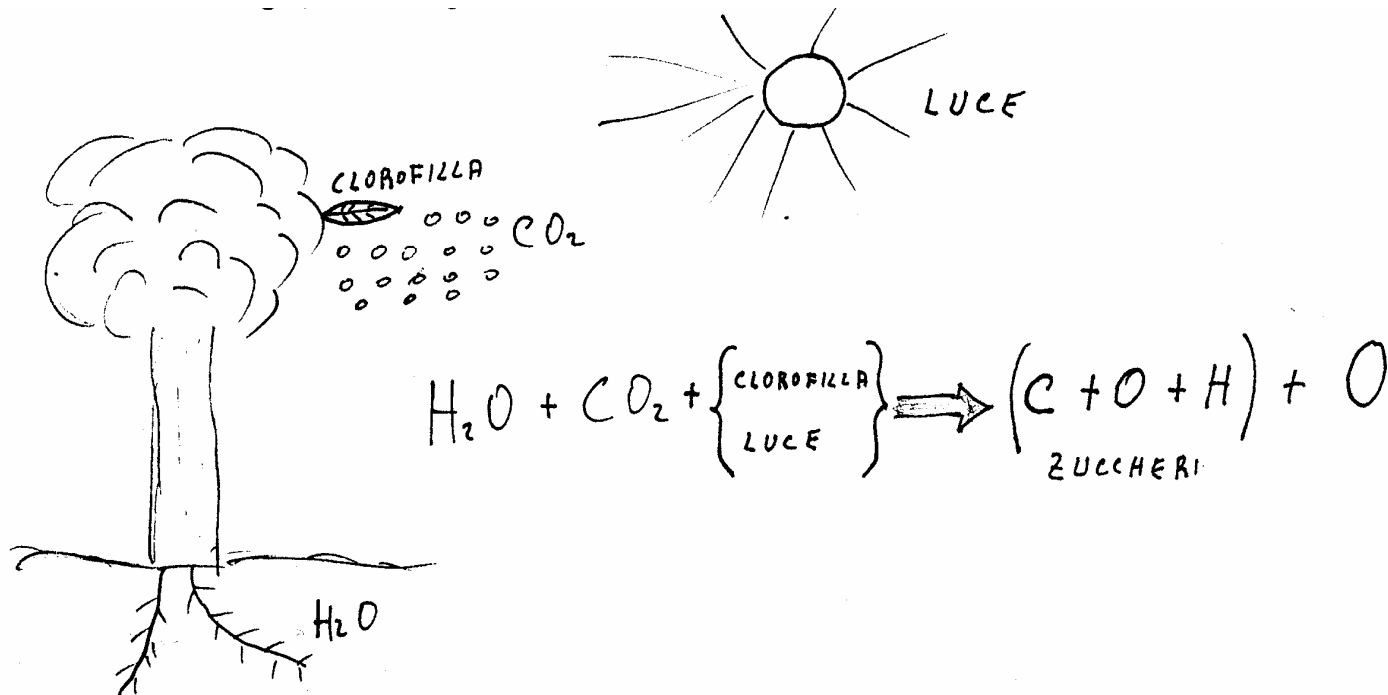 LUCE
CLOROFILLA
CO₂
H₂O + CO₂ + { CLOROFILLA LUCE } ⇒ (C + O + H) + O
ZUCCHERI
H₂O